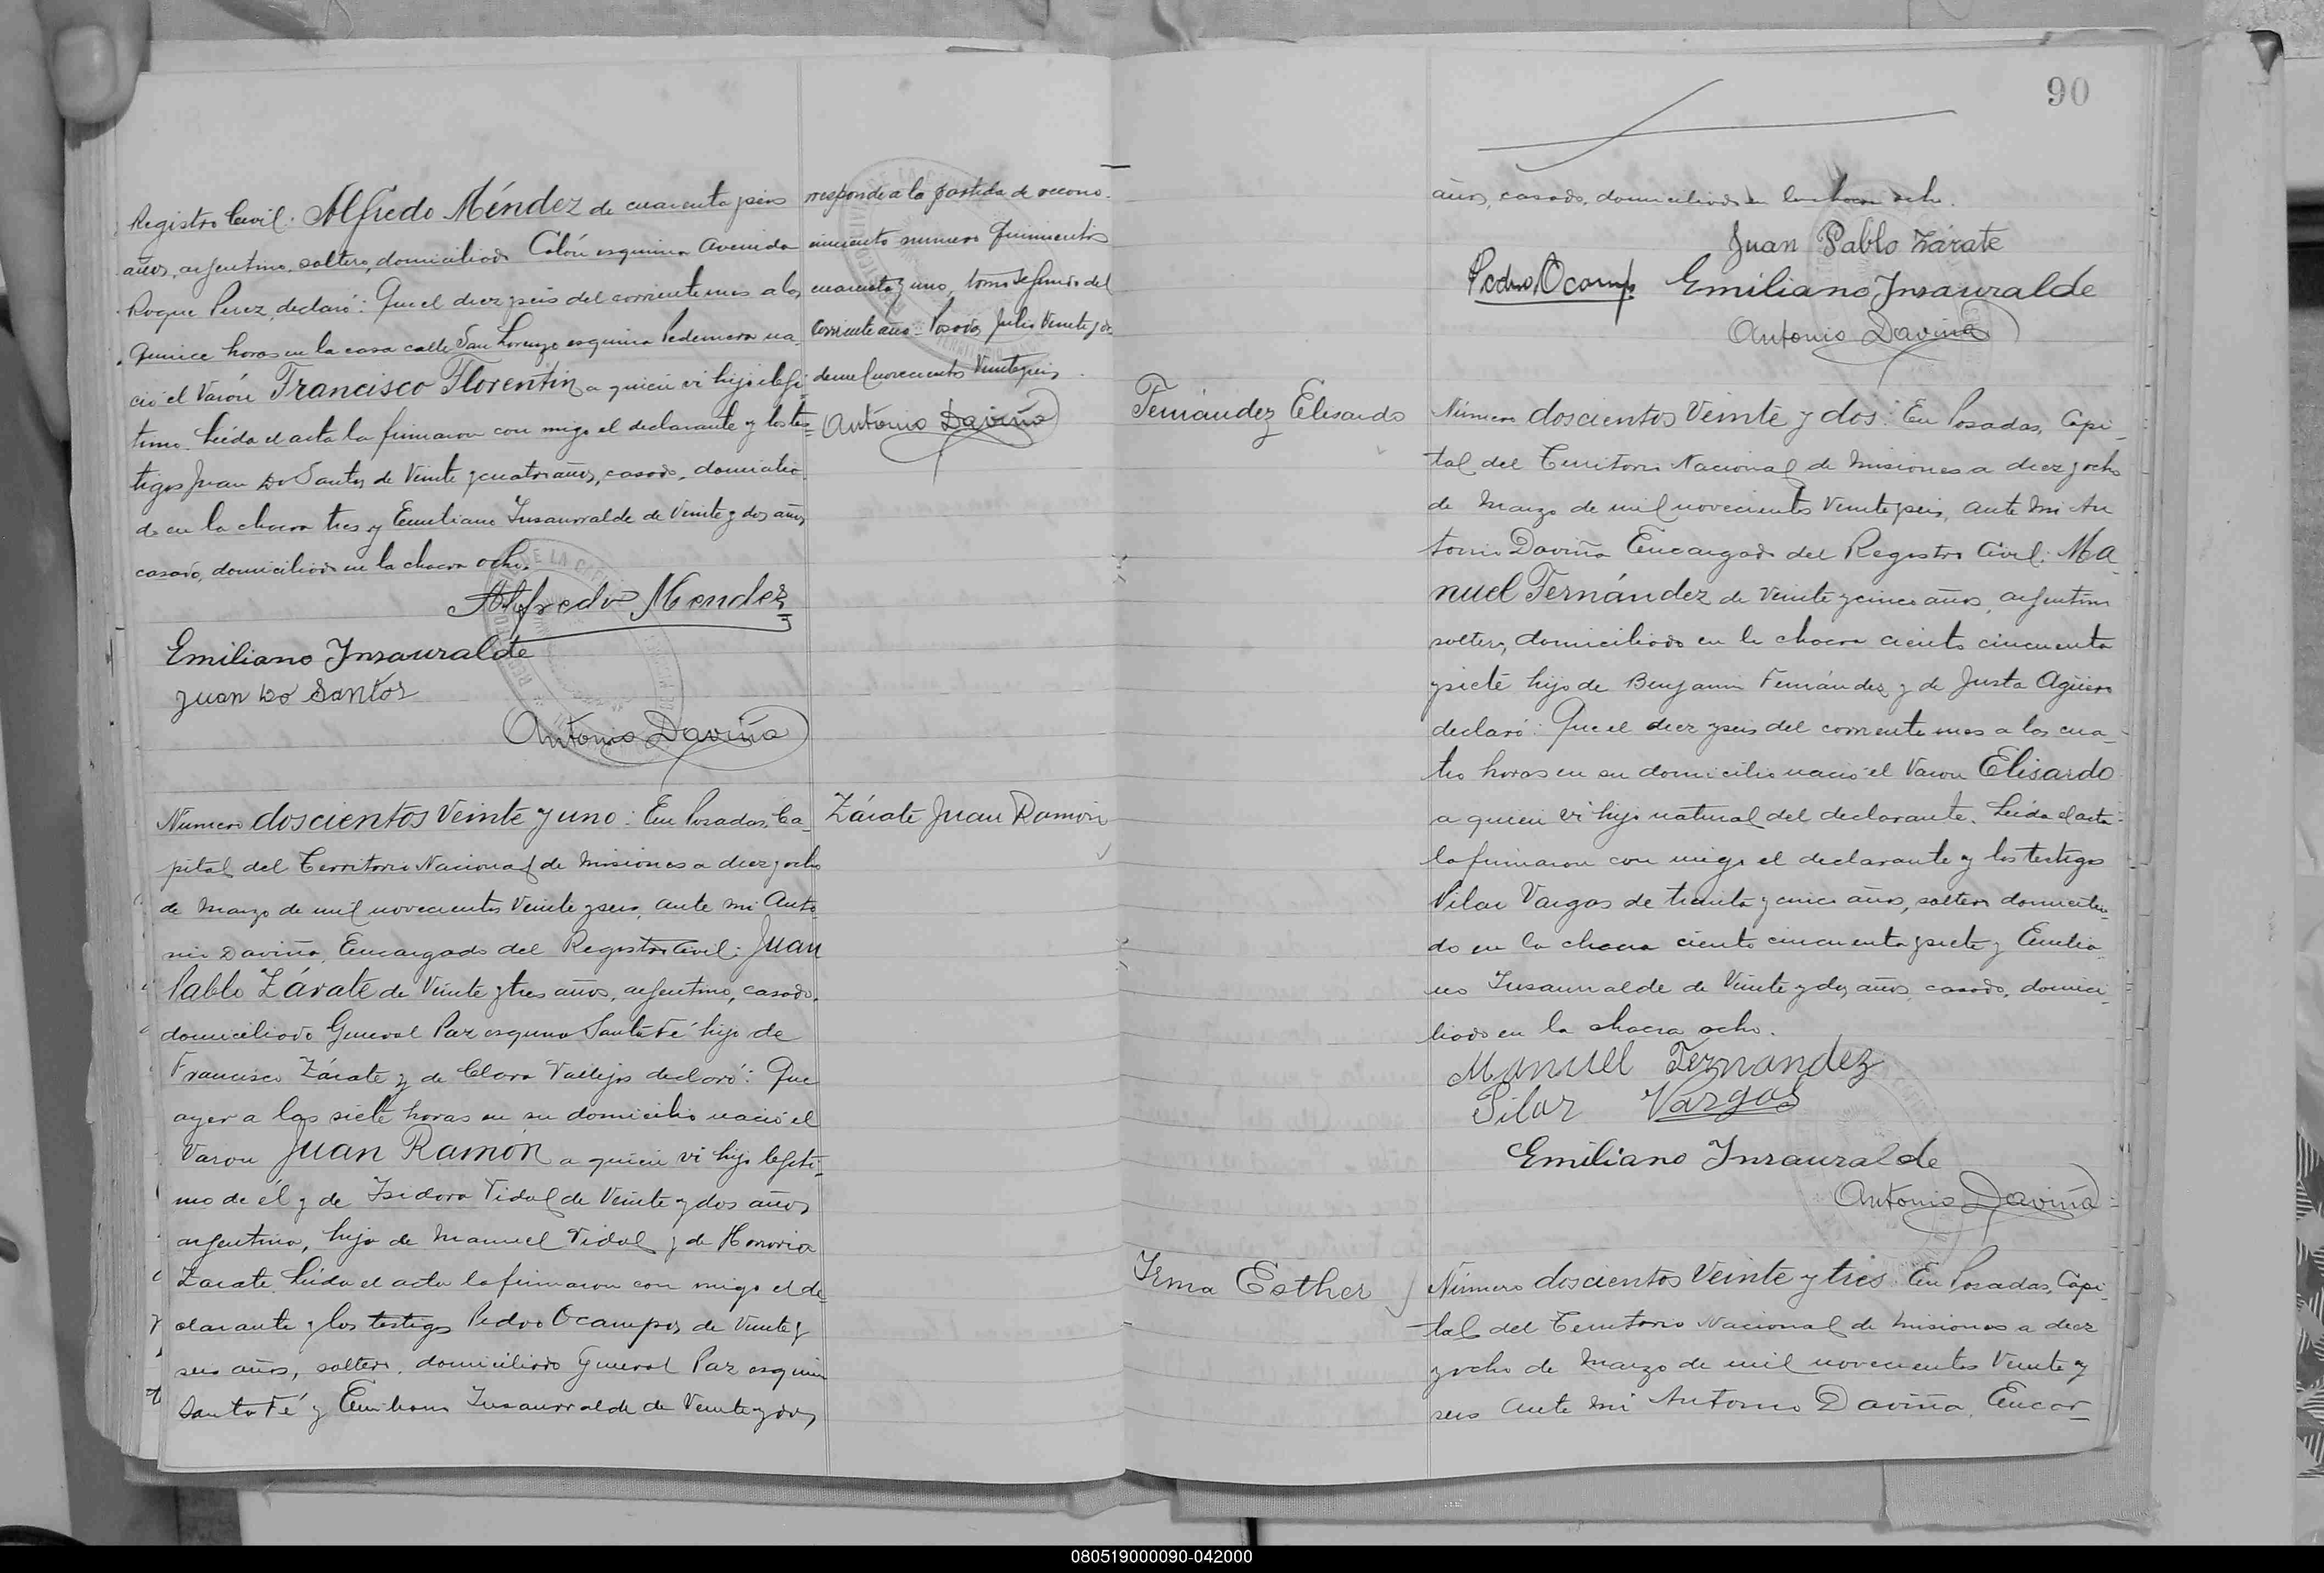 Registro Civil: Alfredo Méndez de cuarenta y seis
años, argentino, soltero, domiciliado Colón esquina Avenida
Roque Perez, declaró: Que el diez y seis del corriente mes a las
quince horas en la casa calle San Lorenzo esquina Pedernera na-
ció el Varón Francisco Florentin a quien vi hijo ilegí-
timo. Leída el acta la firmaron con migo el declarante y los tes-
tigos Juan Do Santos de Veinte y cuatro años, casado, domicilia-
do en la chacra tres y Emiliano Insaurralde de Veinte y dos años
casado, domiciliado en la chacra ocho.
Alfredo Mendez
Emiliano Insauralde
Juan Do Santos
Antonio Daviña
rresponde a la partida de recono-
cimiento numero Quinientos
cuarenta y uno, tomo segundo del
corriente año. Posadas, Julio Veinte y
de mil novecientos Veinte y seis
Antonio Daviña
Número doscientos Veinte y uno: En Posadas, Ca-
pital del Territorio Nacional de Misiones a diez y ocho
de Marzo de mil novecientos Veinte y seis, ante mi Anto-
nio Daviña, Encargado del Registro Civil: Juan
Pablo Zárate de Veinte y tres años, argentino, casado,
domiciliado General Paz esquina Santa Fé hijo de
Francisco Zárate y de Clara Vallejos declaró: Que
ayer a las siete horas en su domicilio nació el
Varon Juan Ramón a quien vi hijo legíti-
mo de él y de Isidora Vidal de Veinte y dos años
argentina, hija de Manuel Vidal y de Honoria
Zarate. Leída el acta la firmaron con migo el de-
clarante y los testigos Pedro Ocampos de Veinte y
seis años, soltero, domiciliado General Paz esquina
Santa Fé y Emiliano Insaurralde de Veinte y dos
Zárate Juan Ramón
90
años, casado, domiciliado en la chacra ocho.
Juan Pablo Zárate
Pedro Ocampo Emiliano Insauralde
Antonio Daviña
Fernández Elisardo
Número doscientos Veinte y dos: En Posadas, Capi-
tal del Territorio Nacional de Misiones a diez y ocho
de Marzo de mil novecientos Veinte y seis, ante mi An
tonio Daviña Encargado del Registro Civil: Ma-
nuel Fernández de Veinte y cinco años, argentino
soltero, domiciliado en la chacra ciento cincuenta
y siete hijo de Benjamin Fernández y de Justa Agüero
declaró: Que el diez y seis del corriente mes a las cua-
tro horas en su domicilio nació el Varon Elisardo
a quien vi hijo natural del declarante. Leída el acta
la firmaron con migo el declarante y los testigos
Pilar Vargas de treinta y cinco años, soltero domicilia-
do en la chacra ciento cincuenta y siete y Emilia-
no Insaurralde de Veinte y dos años, casado, domici-
liado en la chacra ocho.
Manuel Fernandez
Pilar Vargas
Emiliano Insauralde
Antonio Daviña
Irma Esther
Número doscientos Veinte y tres: En Posadas, Capi-
tal del Territorio Nacional de Misiones a diez
y ocho de Marzo de mil novecientos Veinte y
seis ante mi Antonio Daviña, Encar-
080519000090-042000